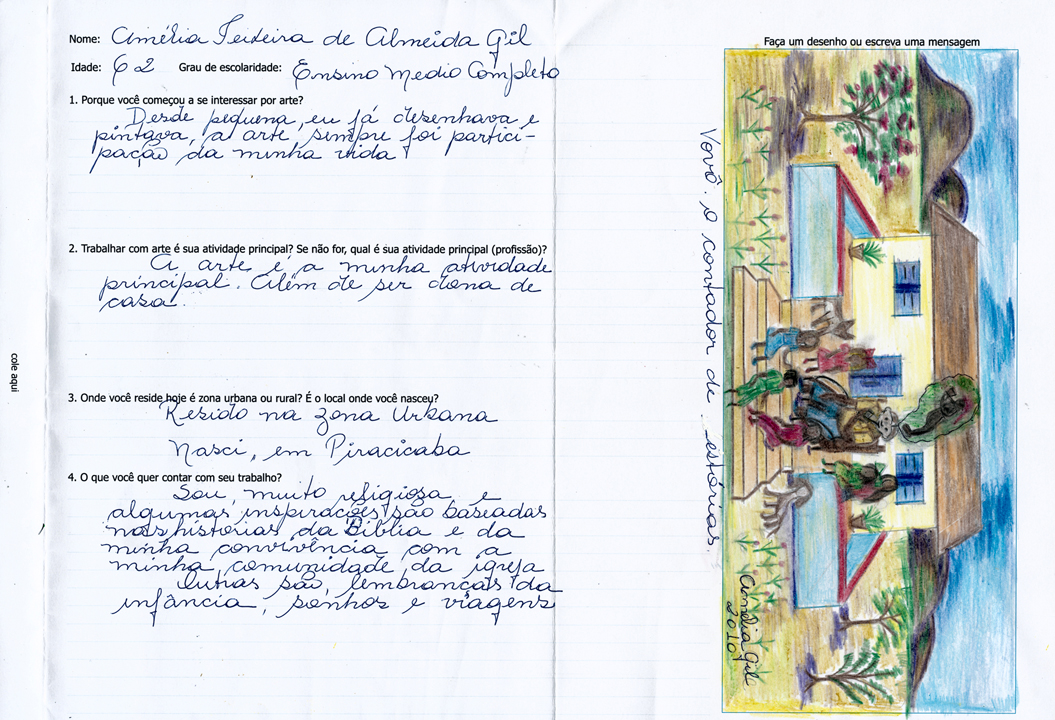 Nome: Amélia Teixeira de Almeida Gil
Idade: 62 Grau de escolaridade: Ensino Medio Completo
1. Porque você começou a se interessar por arte?
Desde pequena, eu já desenhava e
pintava, a arte sempre foi partici-
pação da minha vida
2. Trabalhar com arte é sua atividade principal? Se não for, qual é sua atividade principal (profissão)?
A arte é a minha atividade
principal. Além de ser dona de
casa.
3. Onde você reside hoje é zona urbana ou rural? É o local onde você nasceu?
Resido na zona Urbana
Nasci, em Piracicaba
4. O que você quer contar com seu trabalho?
Sou, muito religiosa e
algumas inspirações são baseadas
nas histórias da Bíblia e da
minha convivência com a
minha comunidade da igreja
Outras são, lembranças da
infância, sonhos e viagens
cole aqui
Faça um desenho ou escreva uma mensagem
Vovô. o contador de estórias.
Amélia Gil
2010